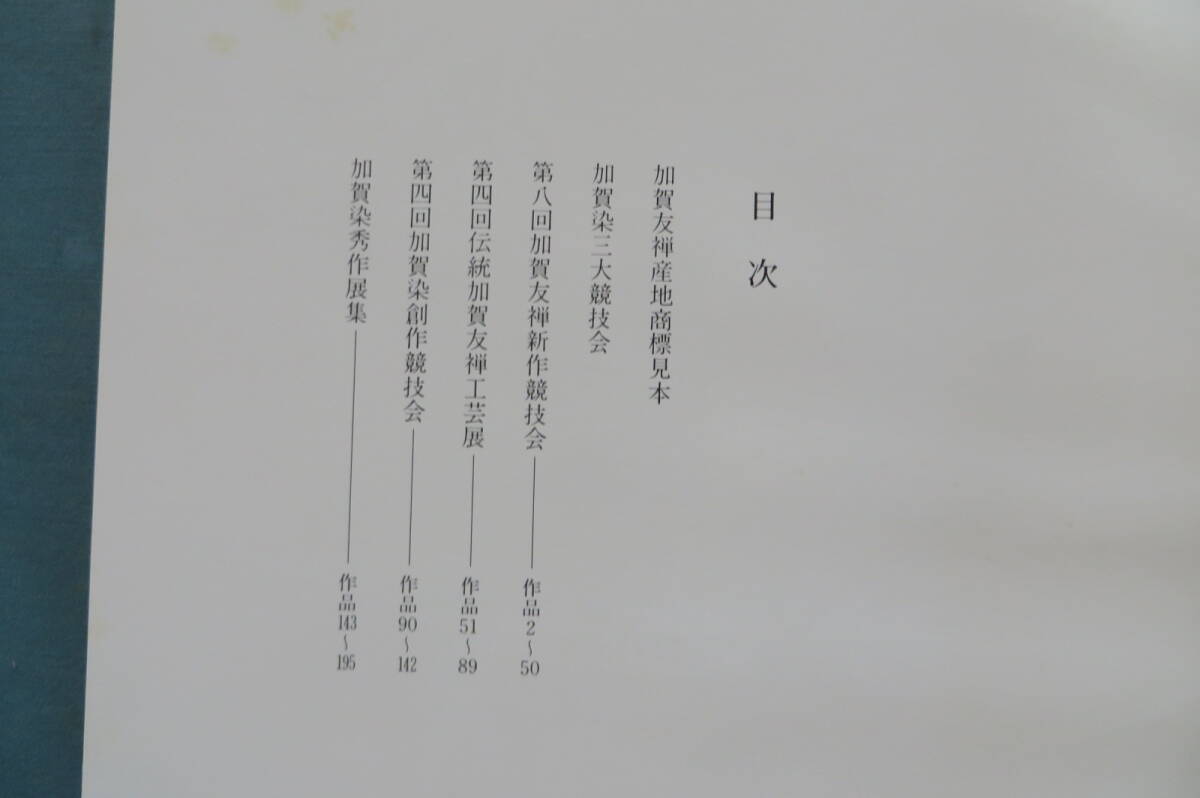 目次
加賀友禅産地商標見本
加賀染三大競技会
第八回加賀友禅新作競技会――――作品2~50
第四回伝統加賀友禅工芸展――――作品51~89
第四回加賀染創作競技会――――作品90~142
加賀染秀作展集――――作品143~195